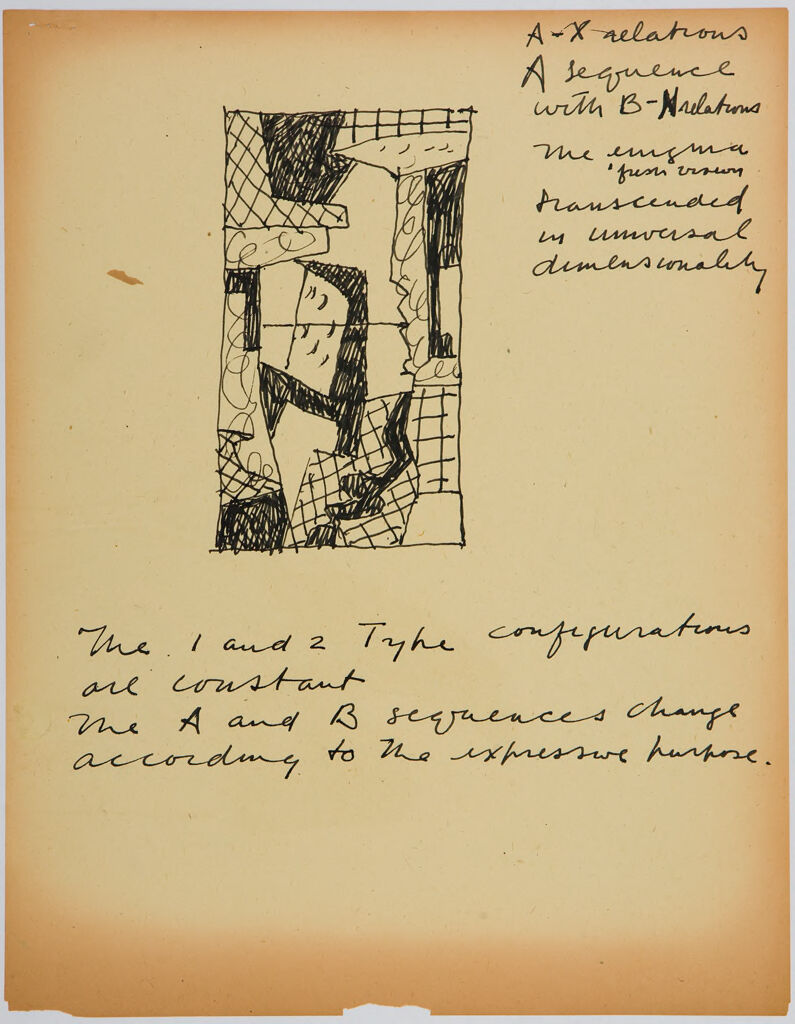 A-X relations
A sequence
with B-N relations
The enigma
'fresh vision
transcended
in universal
dimensionality
The 1 and 2 Type configurations
are constant
The A and B sequences change
according to the expressive purpose.